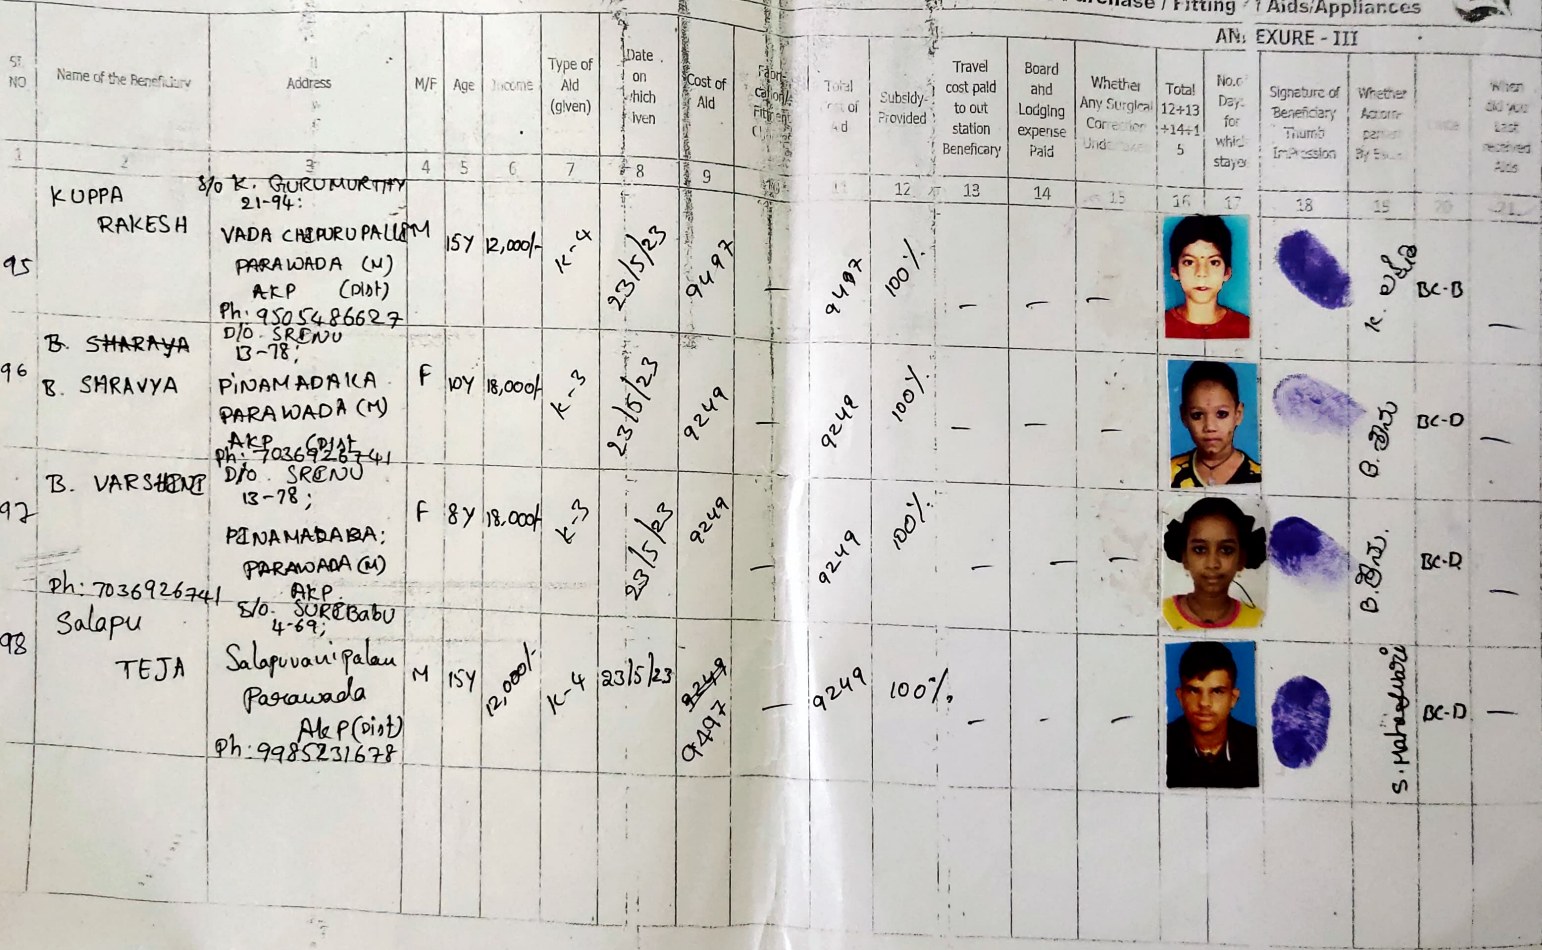 / Fitting / Aids/Appliances
ANEXURE - III
Sr. NO
Name of the Beneficiary
Address
M/F
Age
Income
Type of Aid (given)
Date on which given
Cost of Aid
Total Cost of Aid
Subsidy Provided
Travel cost paid to out station Beneficary
Board and Lodging expense Paid
Whether Any Surgical Correction
Total 12+13 +14+1 5
No.of Days for which stayed
Signature of Beneficiary Thumb Impression
Whether
When did you Last received Aids
1 2 3 4 5 6 7 8 9 11 12 13 14 15 16 17 18 19 20 21
95
KUPPA
RAKESH
S/o K. GURUMURTHY
21-94:
VADA CHIPURUPALLI
PARAWADA (M)
AKP (Dist)
Ph: 9505486627
M 15Y 12,000/- K-4 23/5/23 9497 — 9497 100% — — — K. లక్ష్మి BC-B —
96
B. SHARAYA
B. SHRAVYA
D/o. SRENU
13-78;
PINAMADAKA
PARAWADA (M)
AKP (Dist
Ph: 7036926741
F 10Y 18,000/- K-3 23/5/23 9249 — 9249 100% — — — B. శ్రీను BC-D —
97
B. VARSHINI
Ph: 7036926741
D/o. SRENU
13-78;
PINAMADABA:
PARAWADA (M)
AKP.
F 8Y 18.000/- K-3 23/5/23 9249 — 9249 100% — — — B. శ్రీను. BC-D —
98
Salapu
TEJA
S/o. SUREBabu
4-69;
Salapuvanipalau
Parawada
AkP (Dist)
Ph: 9985231678
M 15Y 12,000/- K-4 23/5/23 9249 9497 — 9249 100% — — — S. Mahashwari BC-D —